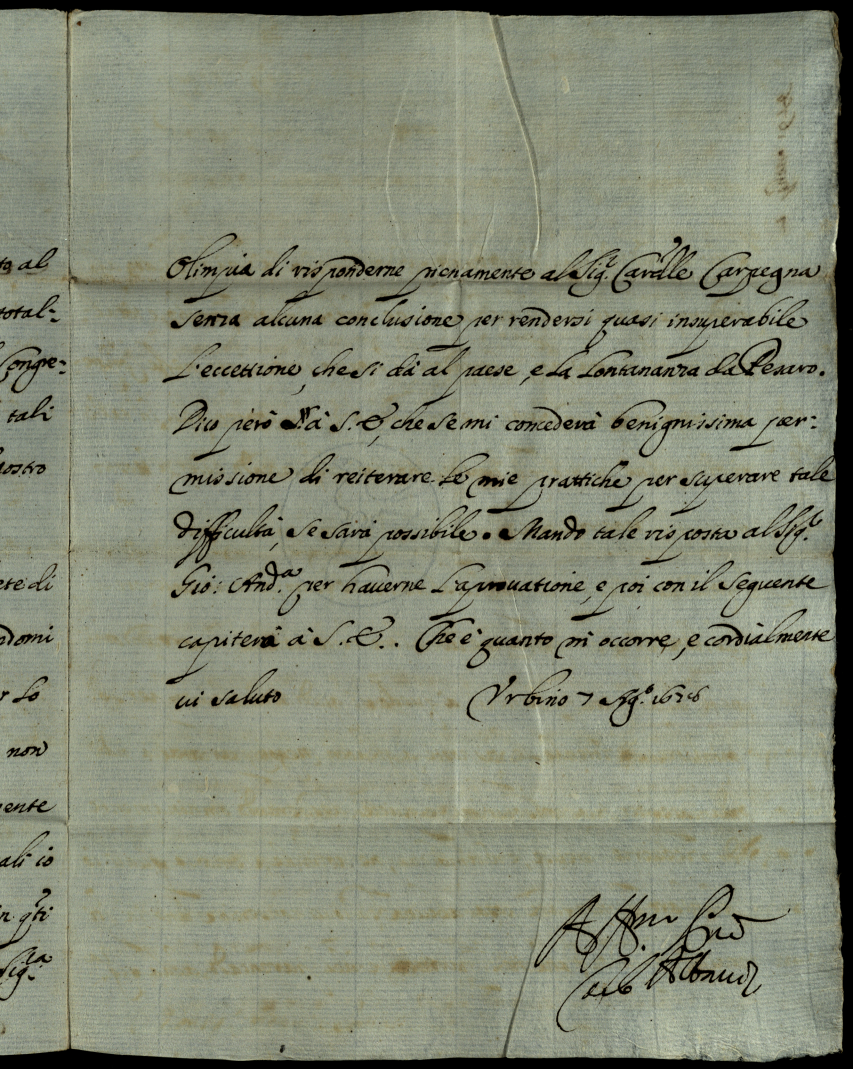 ta al
total-
Congre-
tali
nostro
ete di
ndomi
r lo
non
mente
ali io
in q.ti
Sig.ra
Olimpia di risponderne pienamente al Sig.r Cardle Carpegna
senza alcuna conclusione per rendersi quasi insuperabile
l'eccettione, che si dà al paese, e la lontananza da Pesaro.
Dico però à S. E, che se mi concederà benignissima per:
missione di reiterare le mie prattiche per superare tale
difficultà, se sarà possibile. Mando tale risposta al Sig.r
Gio: And.a per haverne l'aprovatione, e poi con il seguente
capiterà à S. E.. Che è quanto mi occorre, e cordialmente
vi saluto Urbino 7 Ag.o
Aff.mo
Carlo Albani